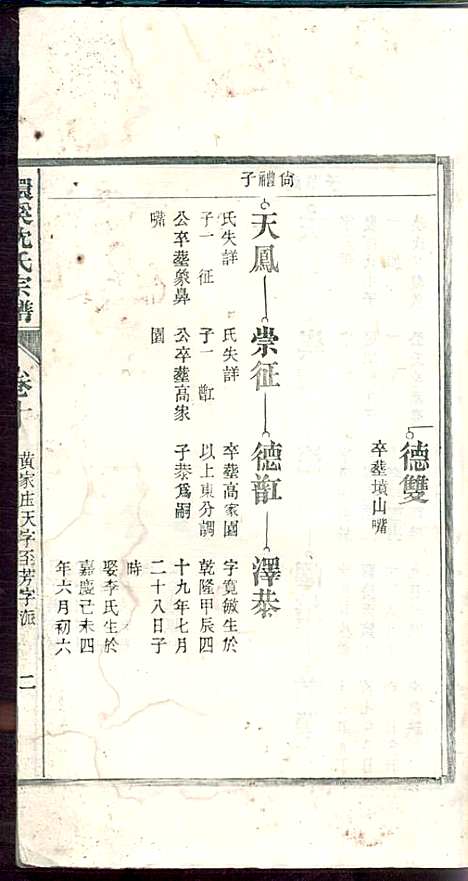 尙禮子
德雙
卒塟墳山嘴
天鳳
氏失詳
子一征
公卒塟象鼻
嘴
崇征
氏失詳
子一
公卒塟高家
園
德
卒塟高家園
以上東分調
子恭爲嗣
澤恭
字寬敏生於
乾隆甲辰四
十九年七月
二十八日子
時
娶李氏生於
嘉慶己未四
年六月初六
環溪沈氏宗譜
卷十
黃家庄天字至芳字派
二